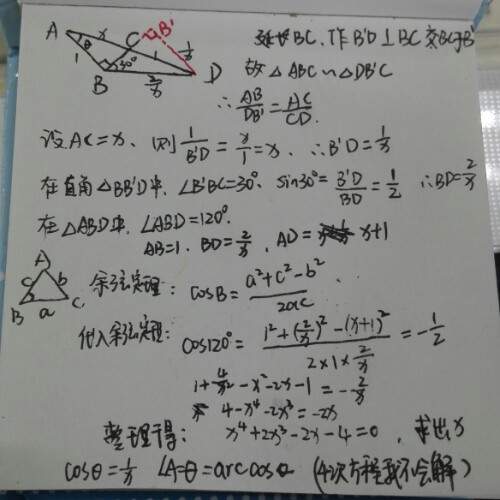 A x C B' θ 1 1 1/x 30° B 2/x D
延长BC, 作B'D⊥BC交BC于B'
故△ABC∽△DB'C
∴ AB/DB' = AC/CD.
设AC=x, 则 1/B'D = x/1 = x, ∴B'D = 1/x
在直角△BB'D中, ∠B'BC=30°, sin30° = B'D/BD = 1/2 ∴BD=2/x
在△ABD中, ∠ABD=120°.
AB=1, BD=2/x, AD= x+1
A c b B a C
余弦定理: cosB = (a²+c²-b²)/2ac
代入余弦定理: cos120° = (1²+(2/x)²-(x+1)²)/(2×1×2/x) = -1/2
1+4/x²-x²-2x-1 = -2/x
4-x⁴-2x³=-2x
整理得: x⁴+2x³-2x-4=0, 求出x
cosθ=1/x ∠A=θ=arccos (4次方程我不会解)